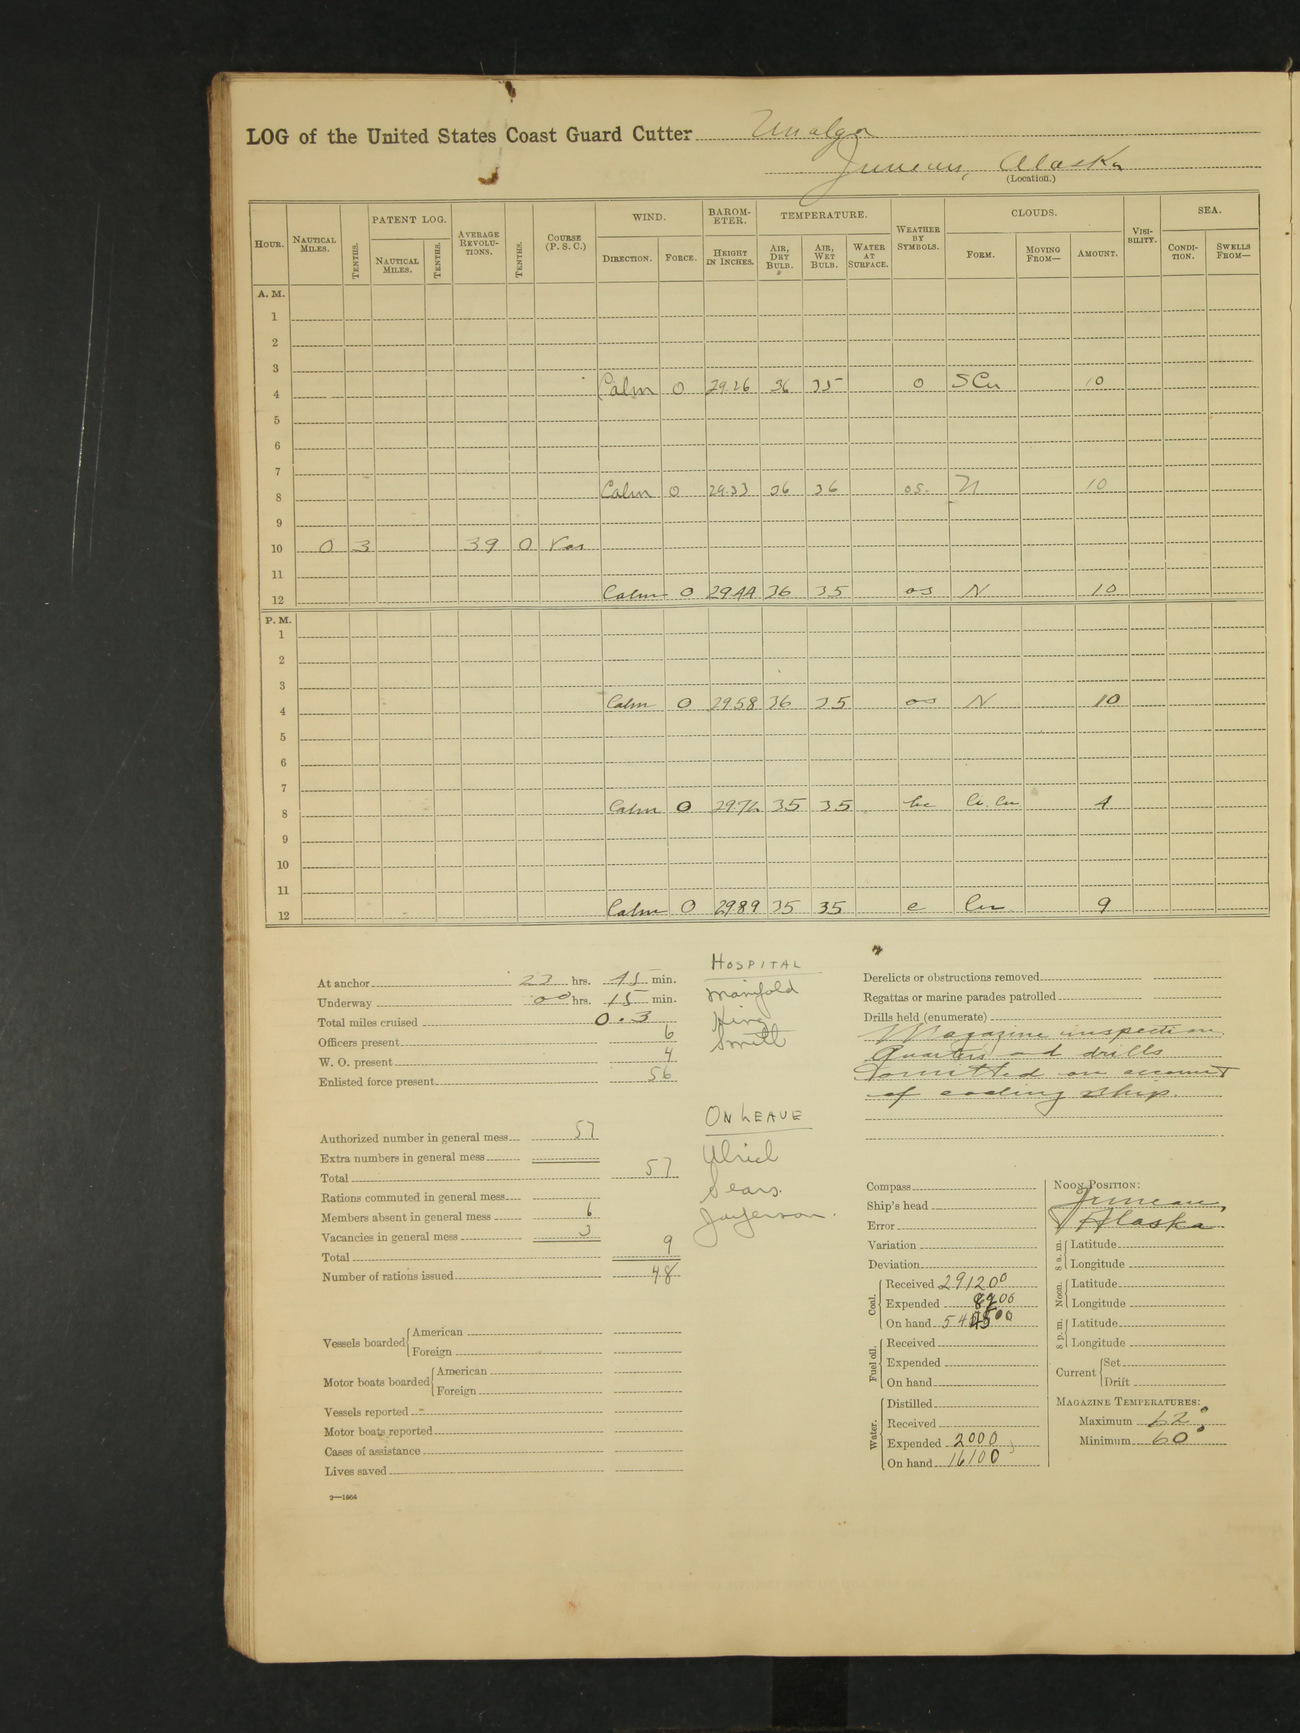 LOG of the United States Coast Guard Cutter Unalga
Juneau, Alaska
(Location.)
HOUR. NAUTICAL MILES. TENTHS. PATENT LOG. NAUTICAL MILES. TENTHS. AVERAGE REVOLUTIONS. TENTHS. COURSE (P. S. C.) WIND. DIRECTION. FORCE. BAROMETER. HEIGHT IN INCHES. TEMPERATURE. AIR, DRY BULB. AIR, WET BULB. WATER AT SURFACE. WEATHER BY SYMBOLS. CLOUDS. FORM. MOVING FROM— AMOUNT. VISIBILITY. SEA. CONDITION. SWELLS FROM—
A. M.
1
2
3
4 Calm 0 29.26 36 35 o SCu 10
5
6
7
8 Calm 0 29.33 36 36 os. N 10
9
10 0 3 39 0 Var
11
12 Calm 0 29.44 36 35 os N 10
P. M.
1
2
3
4 Calm 0 29.58 36 35 os N 10
5
6
7
8 Calm 0 29.76 35 35 bc Ci. Cu 4
9
10
11
12 Calm 0 29.89 35 35 c Cu 9
At anchor 23 hrs. 45 min.
Underway 00 hrs. 15 min.
Total miles cruised 0.3
Officers present 6
W. O. present 4
Enlisted force present 56
Authorized number in general mess 57
Extra numbers in general mess
Total 57
Rations commuted in general mess
Members absent in general mess 6
Vacancies in general mess 3
Total 9
Number of rations issued 48
Vessels boarded American
Foreign
Motor boats boarded American
Foreign
Vessels reported
Motor boats reported
Cases of assistance
Lives saved
2—1664
HOSPITAL
Manifold
King
Smith
ON LEAVE
Ulrich
Sears.
Derelicts or obstructions removed
Regattas or marine parades patrolled
Drills held (enumerate)
Magazine inspection
Quarters and drills
omitted on account
of coaling ship.
Compass
Ship's head
Error
Variation
Deviation
Coal. Received 291200
Expended
On hand
Fuel oil. Received
Expended
On hand
Water. Distilled
Received
Expended 2000
On hand 16100
NOON POSITION:
Juneau,
Alaska
8 a. m. Latitude
Longitude
Noon. Latitude
Longitude
8 p. m. Latitude
Longitude
Current Set
Drift
MAGAZINE TEMPERATURES:
Maximum 62°
Minimum 60°